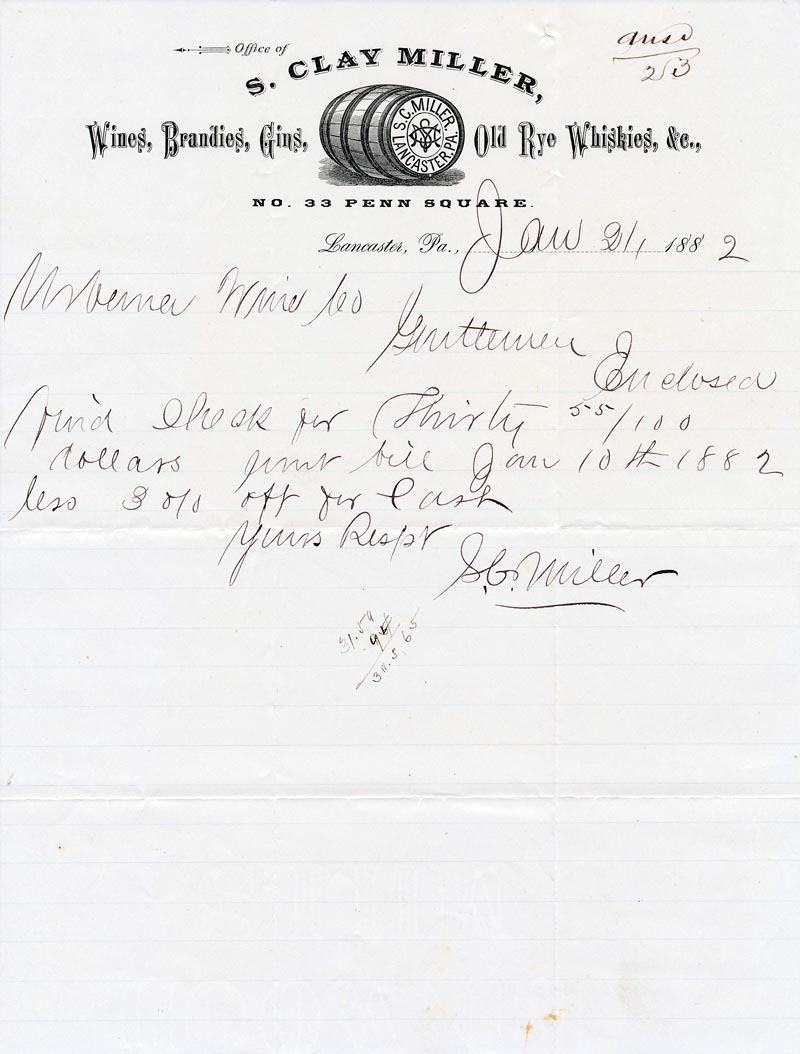 Office of
S. CLAY MILLER,
ansd
23
Wines, Brandies, Gins,
S.C. MILLER
LANCASTER, PA.
Old Rye Whiskies, &c.,
NO. 33 PENN SQUARE.
Lancaster, Pa., Jan 21, 1882
Urbana Wine Co
Gentlemen
Enclosed
find Check for Thirty 55/100
dollars pmt bill Jan 10th 1882
less 3 o/o off for Cash
Yours Respt
S.C. Miller
31.54